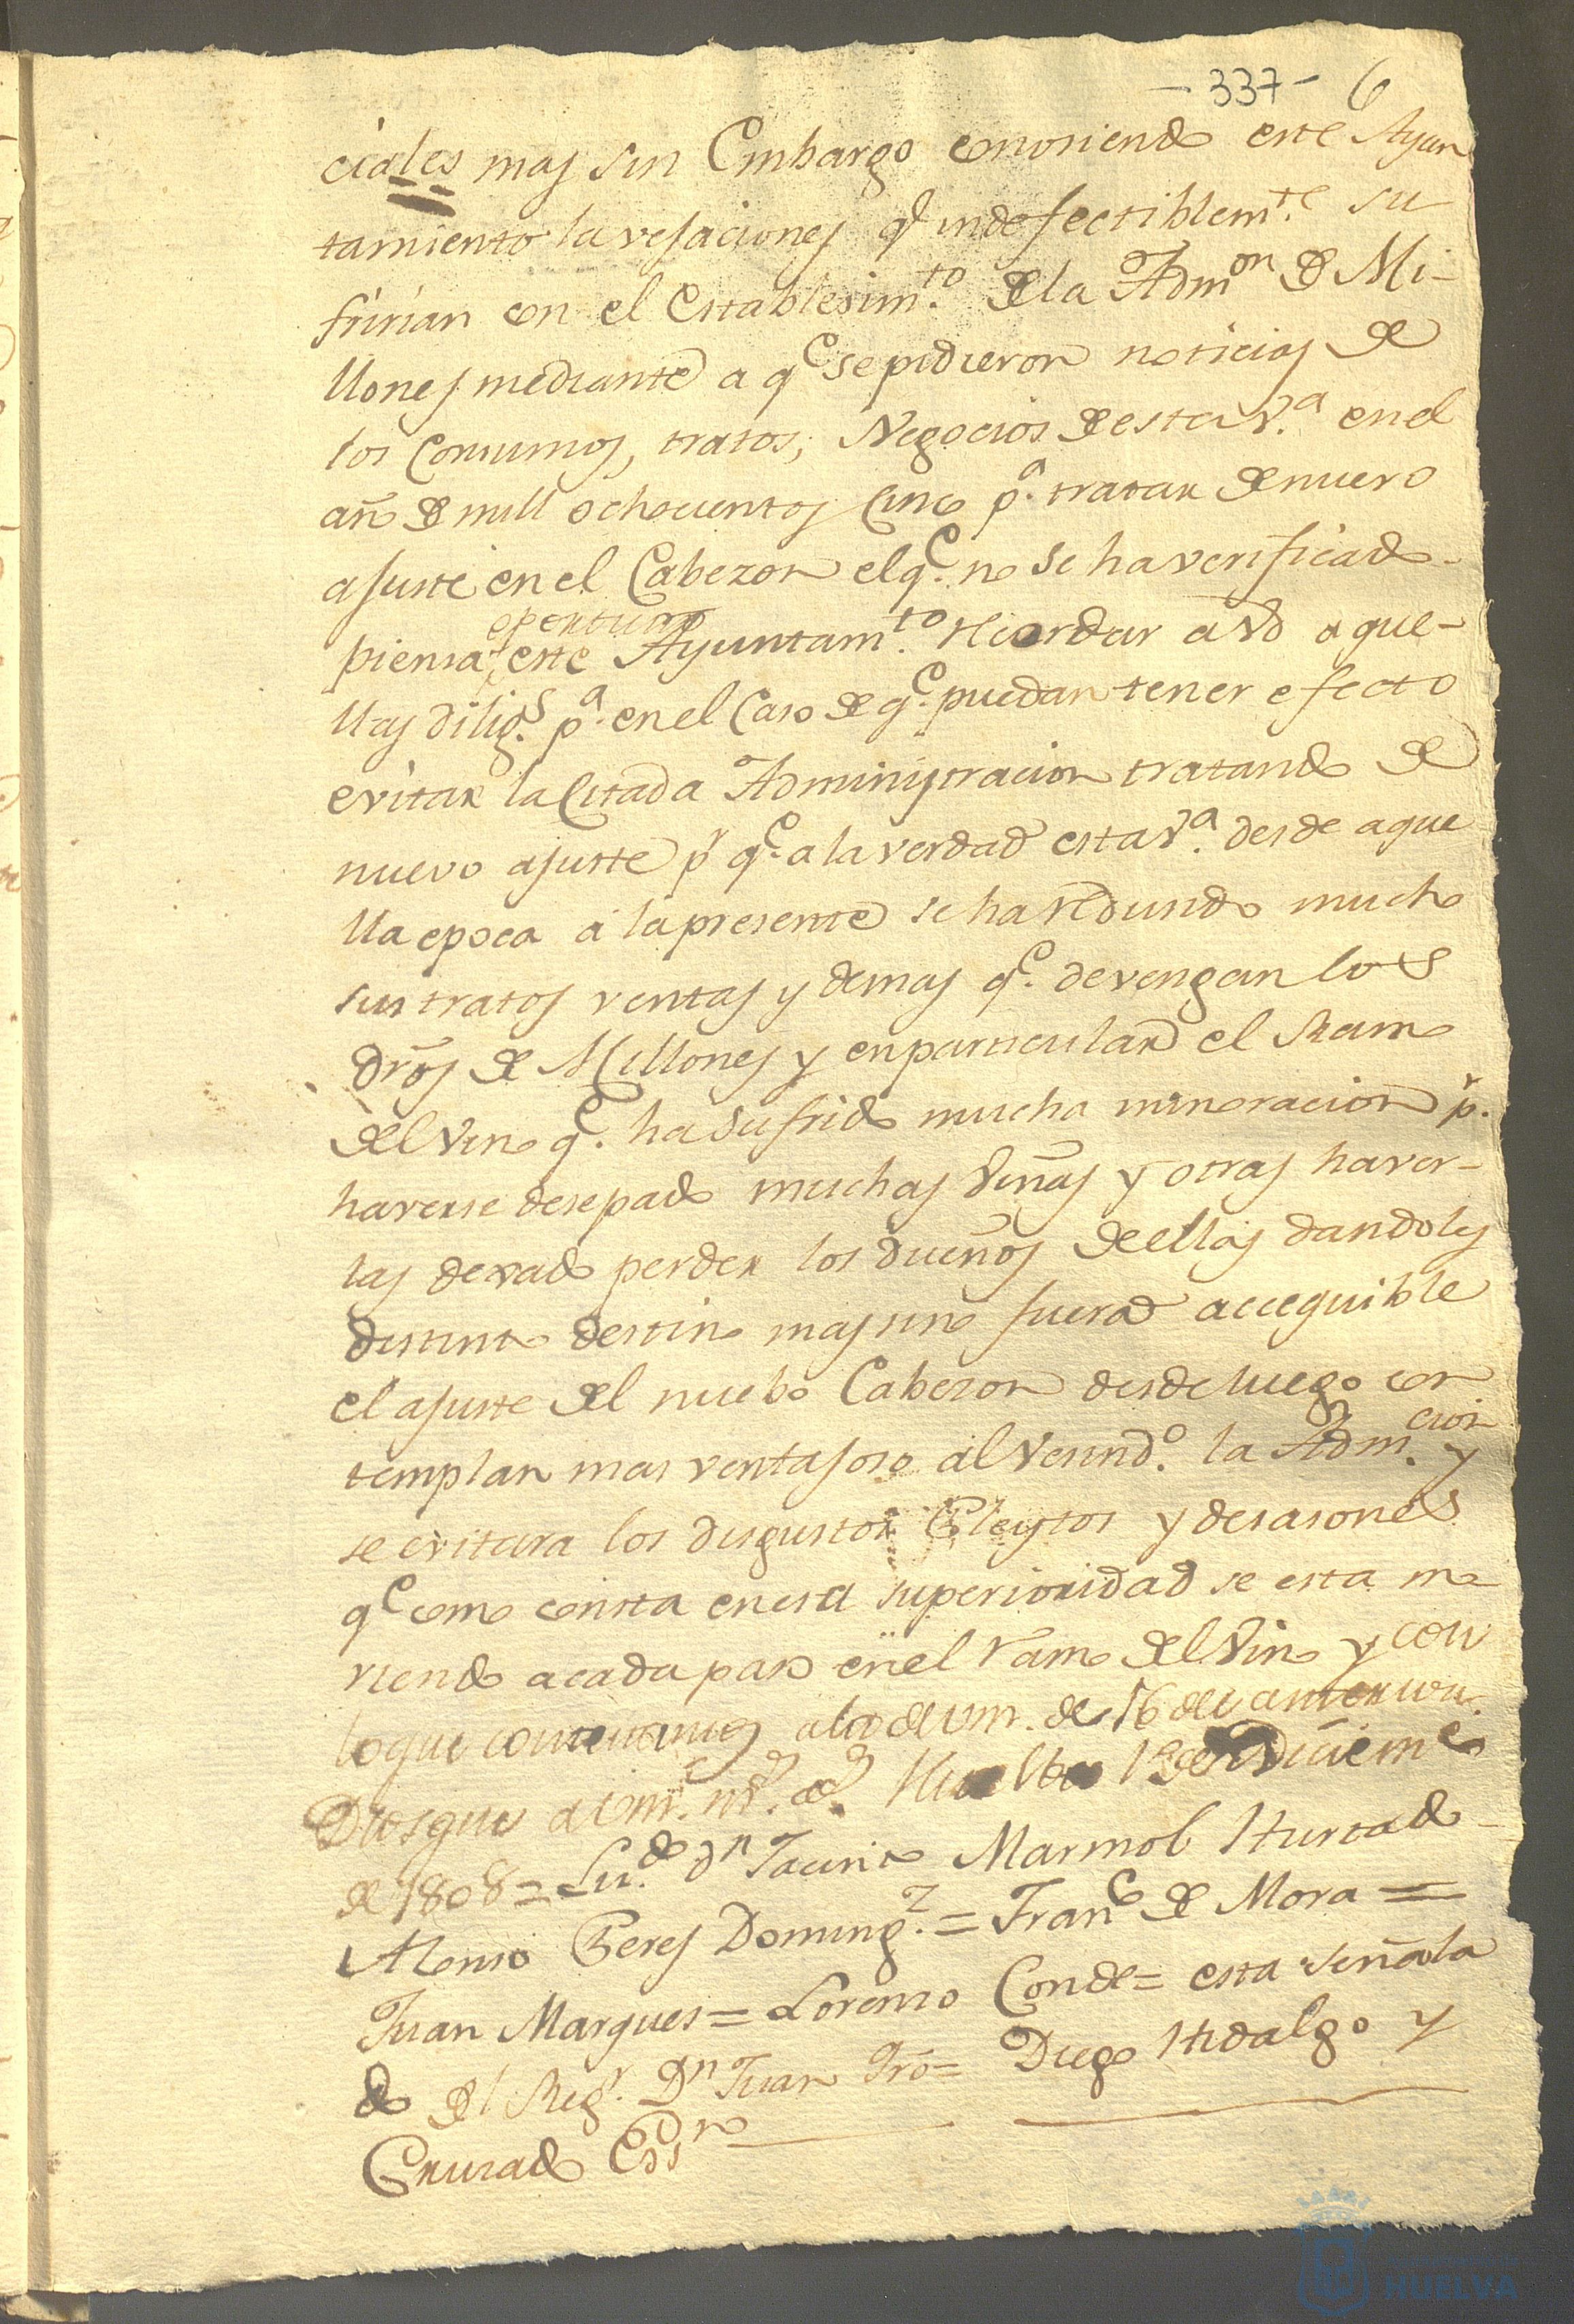 - 337 - 6
ciales mas sin Embargo conosiendo este Ayun
tamiento la vejaciones q.e indefectiblem.te su
fririan con el Establesim.to de la Adm.on de Mi-
llones mediante a q.e se pidieron noticias de
los Consumos, tratos, Negocios de esta V.a en el
año de mill ochocientos cinco p.a tratar de nuevo
ajuste en el Cabezon el q.e no se ha verificado-
oportuno
piensa este Ayuntam.to recordar a Vd aque-
llas dilig.s p.a en el Caso de q.e puedan tener efecto
evitar la Citada Administracion tratando de
nuevo ajuste p.r q.e a la verdad esta V.a desde aque
lla epoca a la presente se ha redusido mucho
sus tratos ventas y demas q.e devengan los
dros de Millones y en particular el Ramo
del Vino q.e ha sufrido mucha minoracion p.r
haverse desepado muchas Viñas y otras haver-
las dexado perder los dueños de ellas dandoles
distinto destino mas sino fuera accequible
el ajuste del nuebo Cabezon desde luego con
templan mas ventajoso al Vesind.o la Adm.cion y
se evitara los disgustos Pleytos y desasones
q.e como consta en esa superioridad se esta mo
viendo a cada paso en el ramo del Vino y con
lo que contextamos a la de Vm. de 16 del anterior.
Dios gue a Vm. m.s a.s Huelba Diciem.e
de 1808 = Lic.do dn Jacinto Marmol Hurtado-
Alonso Peres Doming.z = Fran.co de Mora =
Juan Marques = Lorenso Conde = esta señala
do del Reg.r Dn Juan Tro = Diego Hidalgo y
Cruzado Ess.no
HUELVA